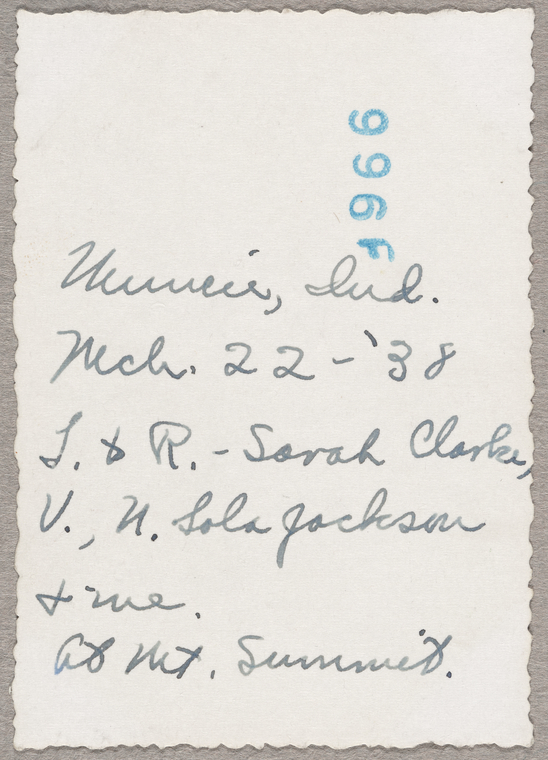 9966
Muncie, Ind.
Mch. 22-'38
L. & R. - Sarah Clarke,
V., N. Lola Jackson
& me.
At Mt. Summit.